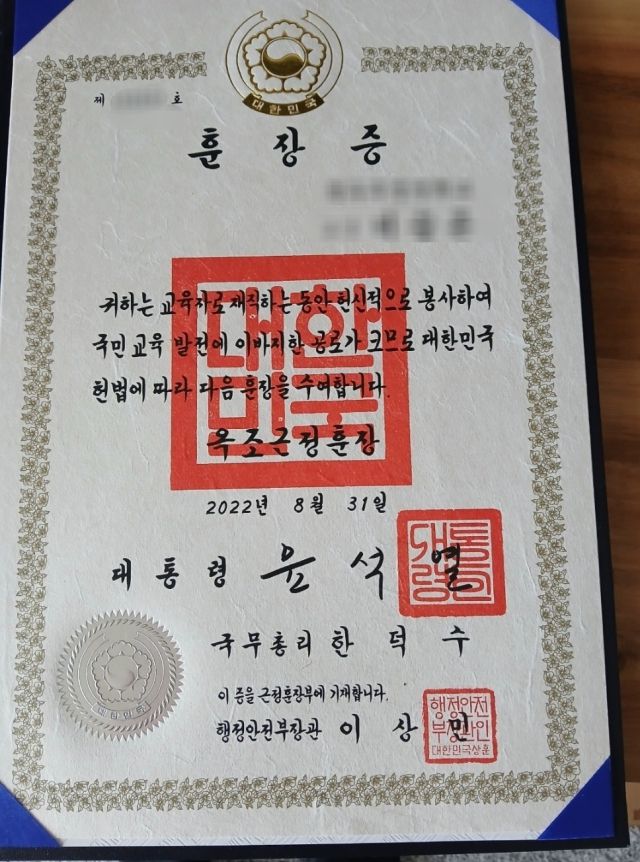 대한민국
제 호
훈장증
귀하는 교육자로 재직하는 동안 헌신적으로 봉사하여
국민 교육 발전에 이바지한 공로가 크므로 대한민국
헌법에 따라 다음 훈장을 수여합니다.
대한
민국
옥조근정훈장
2022년 8월 31일
대통령 윤석열
대통
령인
국무총리 한덕수
대한민국
이 증을 근정훈장부에 기재합니다.
행정안전부장관 이상민
행정안전
부장관인
대한민국상훈